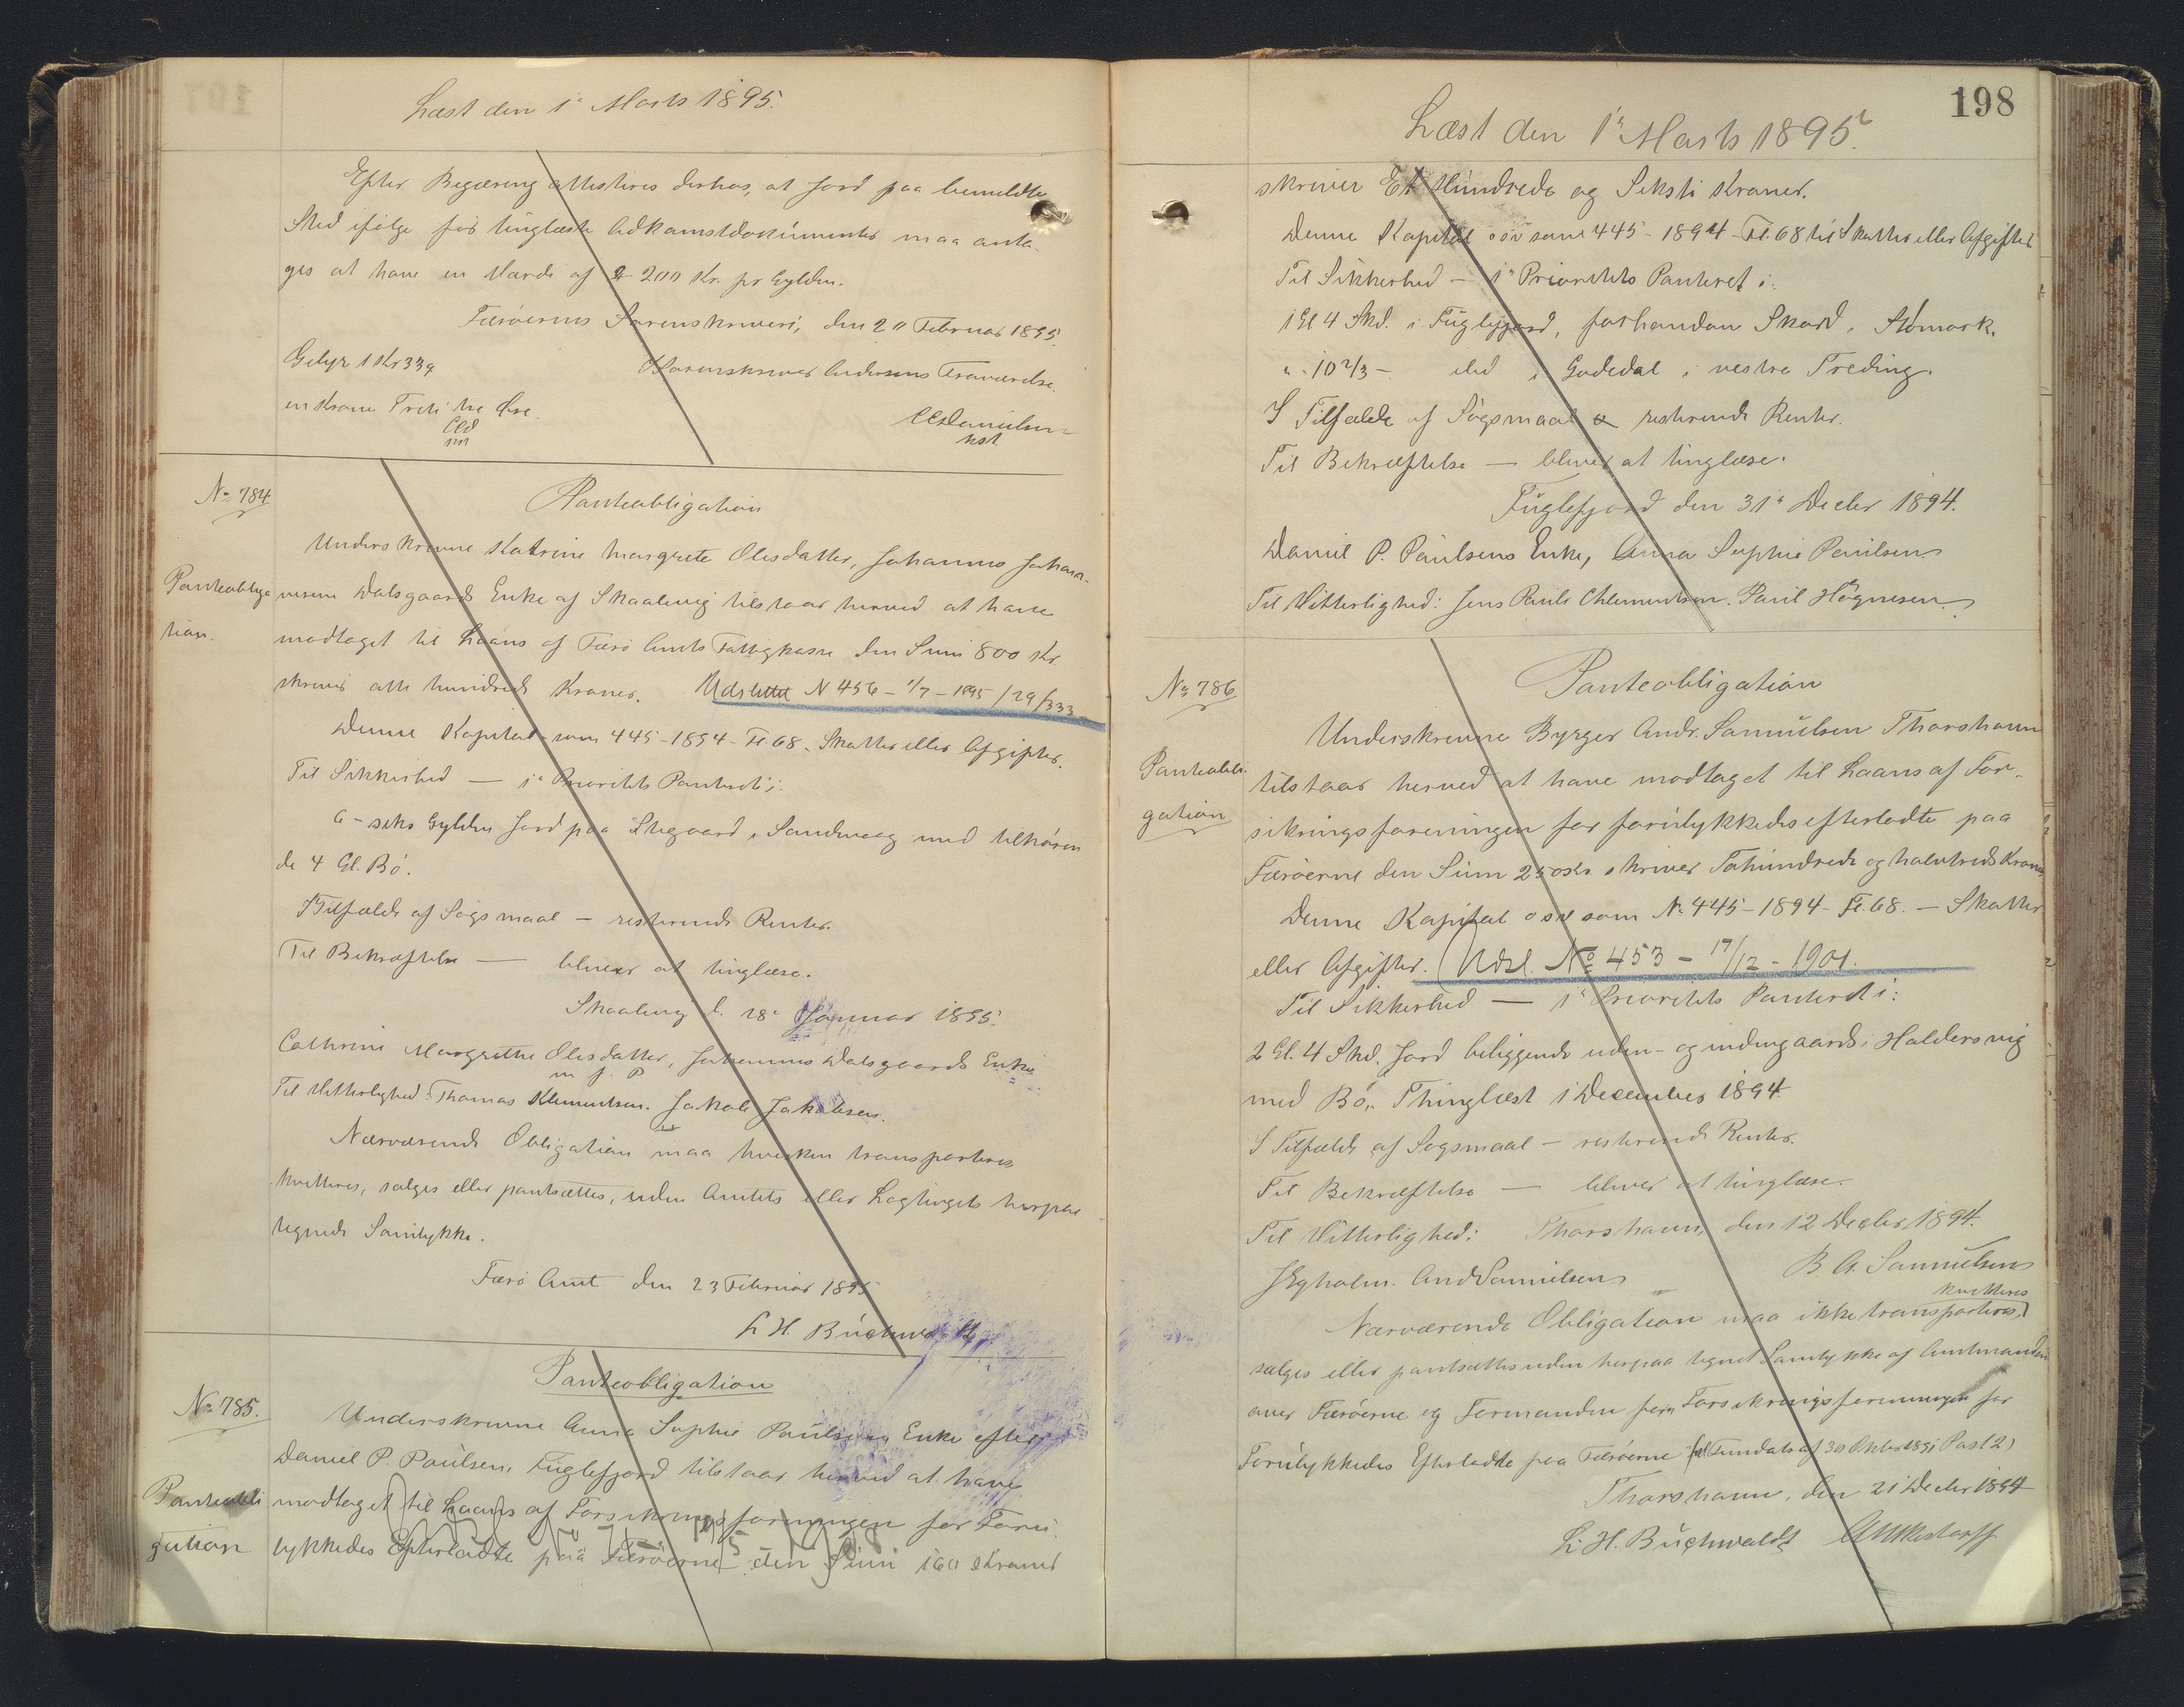 Læst den 1ᵃ Marts 1895.
Efter Begæring attesteres derhos, at Jord paa bemeldte
Sted ifølge før tinglæste Adkomstdokumenter maa anta-
ges at have en Værdi af 200 Kr. pr Gylden.
Færøernes Sorenskriveri, den 20 Februar 1895.
Gebyr 1 Kr 33 ø
Sorenskriver Andersens Fraværelse
en Krone Treti tre Øre.
CCDanielsen
CCD
cst.
No 784
Panteobligation
Underskrevne Katrine Margrete Olesdatter, Johannes Johan-
Panteobliga
nesen Dalsgaards Enke af Skaalevig tilstaar herved at have
tion.
modtaget til Laans af Færø Amts Fattigkasse den Sum 800 Kr
skriver otte hundrede Kroner. Udslettet N 456 - 1/7 - 1895 / 29/333
Denne Kapital som 445 - 1894 - Fl. 68. Skatter eller Afgifter.
Til Sikkerhed — 1ᵃ Prioritets Panteret i:
6 - seks Gylden Jord paa Stegaard i Sandevaag med tilhøren
de 4 Gl. Bø.
I Tilfælde af Søgsmaal — resterende Renter.
Til Bekræftelse — bliver at tinglæse.
Skaalevig d. 18ᵃ Januar 1895.
Cathrine Margrethe Olesdatter, Johannes Dalsgaards Enke
m. f. P
Til Vitterlighed: Thomas Klementsen. Jakob Jakobsen.
Nærværende Obligation maa hverken transporteres
kvitteres, sælges eller pantsættes, uden Amtets eller Lagtingets herpaa
tegnede Samtykke.
Færø Amt den 23 Februar 1895
L. H. Buchwaldt
No 785.
Panteobligation
Underskrevne Anna Sophie Paulsen, Enke efter
Daniel P. Paulsen, Fuglefjord tilstaar herved at have
Panteobli
modtaget til Laans af Forsikringsforeningen for Foru-
gation
lykkedes Efterladte paa Færøerne den Sum 160 Kroner
198
Læst den 1ᵃ Marts 1895.
skriver Et Hundrede og Seksti Kroner.
Denne Kapital osv som 445 - 1894 - Fl. 68 til Skatter eller Afgifter
Til Sikkerhed — 1ᵃ Prioritets Panteret i:
1 Gl 4 Skd. i Fuglefjord, forhandan Skard, Admark.
" - 10 2/3 - ibd i Gødedal i vestra Treding.
I Tilfælde af Søgsmaal resterende Renter.
Til Bekræftelse — bliver at tinglæse.
Fuglefjord den 31ᵃ Decbr 1894.
Daniel P. Paulsens Enke, Anna Sophie Paulsen
Til Vitterlighed: Jens Pauli Chlementsen. Paul Høgnesen
No 786
Panteobligation
Underskrevne Byrger Andr. Samuelsen Thorshavn
Panteobli-
tilstaar herved at have modtaget til Laans af For-
gation
sikringsforeningen for forulykkedes efterladte paa
Færøerne den Sum 250 Kr. skriver Tohundrede og halvtreds Kroner
Denne Kapital osv som No 445 - 1894 - Fl. 68. — Skatter
eller Afgifter. (Udsl. No 453 - 17/12 - 1901.
Til Sikkerhed — 1ᵃ Prioritets Panteret i:
2 Gl. 4 Skd. Jord beliggende uden- og indengaards i Haldersvig
med Bø. Thinglæst 1 December 1894.
I Tilfælde af Søgsmaal — resterende Renter.
Til Bekræftelse — bliver at tinglæse.
Til Vitterlighed: Thorshavn, den 12 Decbr 1894.
J Egholm. And Samuelsen
B A. Samuelsen
kvitteres
Nærværende Obligation maa ikke transporteres,
sælges eller pantsættes uden herpaa tegnet Samtykke af Amtmanden
over Færøerne og Formanden for Forsikringsforeningen for
Forulykkedes Efterladte paa Færøerne (Fundats af 30 Oktbr 1891 Post 2)
Thorshavn, den 21 Decbr 1894
L. H. Buchwaldt